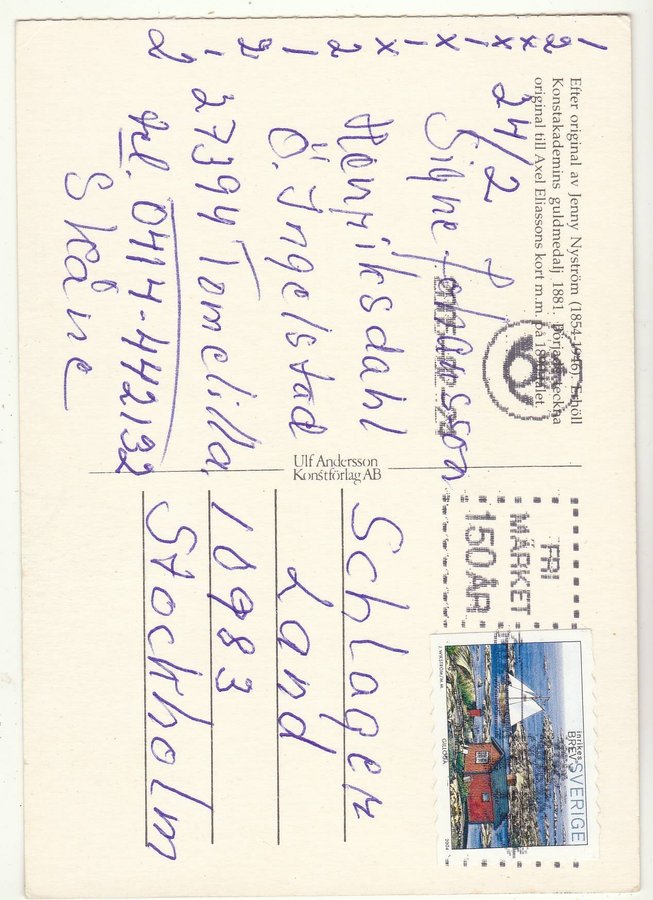 Efter original av Jenny Nyström (1854-1946). Erhöll
Konstakademins guldmedalj 1881. Började teckna
original till Axel Eliassons kort m.m. på
1
2
x
x
1
x
1
x
2
1
2
1
2
24/2
Signe Johansson
Henriksdahl
Ö. Ingelstad
27394 Tomelilla,
tel. 0414-442132
Skåne
Ulf Andersson
Konstförlag AB
FRI
MÄRKET
150 ÅR
inrikes
BREV SVERIGE
GULLÖGA
2004
Schlager
Land
10983
Stockholm